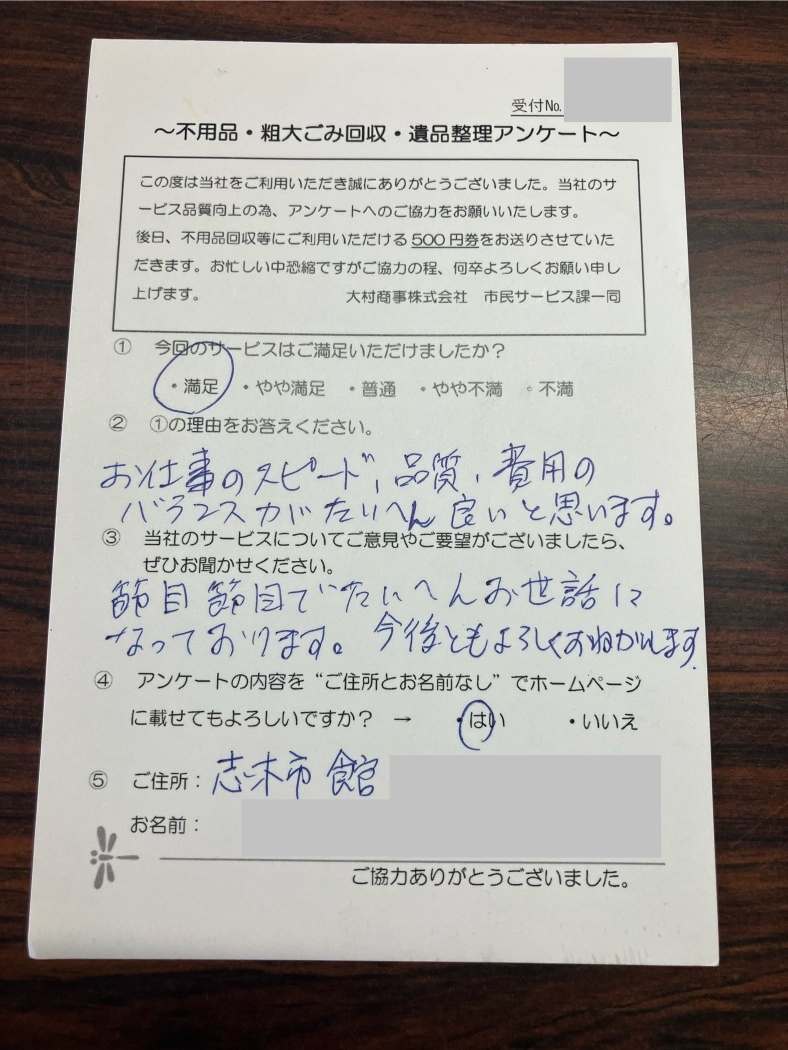 受付No.
～不用品・粗大ごみ回収・遺品整理アンケート～
この度は当社をご利用いただき誠にありがとうございました。当社のサ
ービス品質向上の為、アンケートへのご協力をお願いいたします。
後日、不用品回収等にご利用いただける500円券をお送りさせていた
だきます。お忙しい中恐縮ですがご協力の程、何卒よろしくお願い申し
上げます。 大村商事株式会社 市民サービス課一同
① 今回のサービスはご満足いただけましたか？
・満足 ・やや満足 ・普通 ・やや不満 ・不満
② ①の理由をお答えください。
お仕事のスピード、品質、費用の
バランスがたいへん良いと思います。
③ 当社のサービスについてご意見やご要望がございましたら、
ぜひお聞かせください。
節目節目でたいへんお世話に
なっております。今後ともよろしくおねがいします.
④ アンケートの内容を“ご住所とお名前なし”でホームページ
に載せてもよろしいですか？ → ・はい ・いいえ
⑤ ご住所：志木市館
お名前：
ご協力ありがとうございました。